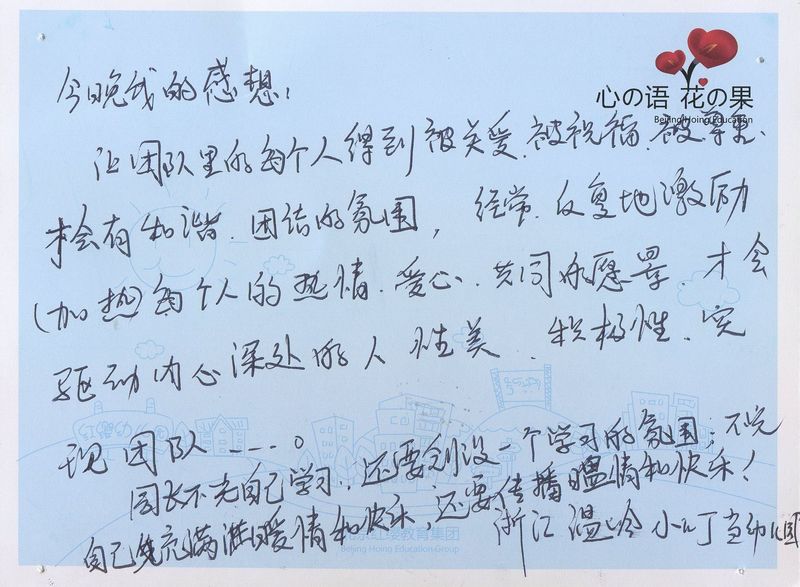 心の语 花の果
Beijing Hoing Education
今晚我的感想：
让团队里的每个人得到被关爱、被祝福、被尊重、
才会有和谐、团结的氛围，经常、反复地激励
（加热）每个人的热情、爱心、共同的愿景、才会
驱动内心深处的人性美、积极性、实
现团队----。
园长不光自己学习、还要创设一个学习的氛围；不光
自己先充满满满暖情和快乐，还要传播温情和快乐！
浙江温岭小叮当幼儿园
北京红缨教育集团
Beijing Hoing Education Group